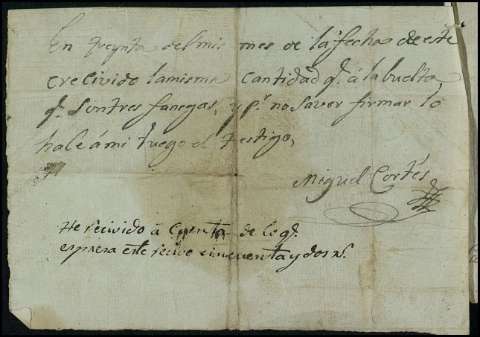 En treynta del mis mes de la fecha de este
e recivido la misma cantidad q.e á la buelta
q.e son tres fanegas, y p.r no saver firmar lo
hace á mi ruego el testigo,
Miguel Cortés
He recivido á cuenta de lo q.e
espresa este recivo cincuenta y dos r.s